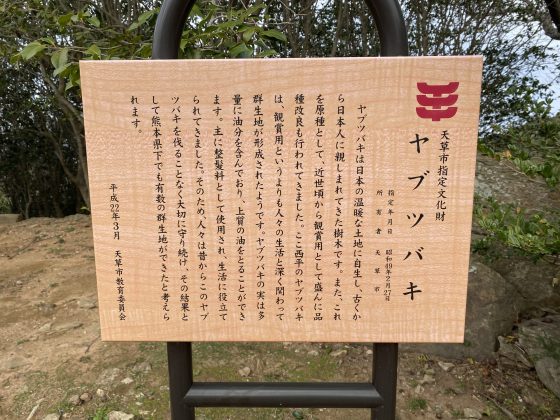 天草市指定文化財
ヤブツバキ
指定年月日　昭和49年2月27日
所有者　天草市
ヤブツバキは日本の温暖な土地に自生し、古くか
ら日本人に親しまれてきた樹木です。また、これ
を原種として、近世頃から観賞用として盛んに品
種改良も行われてきました。ここ西平のヤブツバキ
は、観賞用というよりも人々の生活と深く関わって
群生地が形成されたようです。ヤブツバキの実は多
量に油分を含んでおり、上質の油をとることができ
ます。主に整髪料として使用され、生活に役立て
られてきました。そのため、人々は昔からこのヤブ
ツバキを伐ることなく大切に守り続け、その結果と
して熊本県下でも有数の群生地ができたと考えら
れます。
平成22年3月　天草市教育委員会